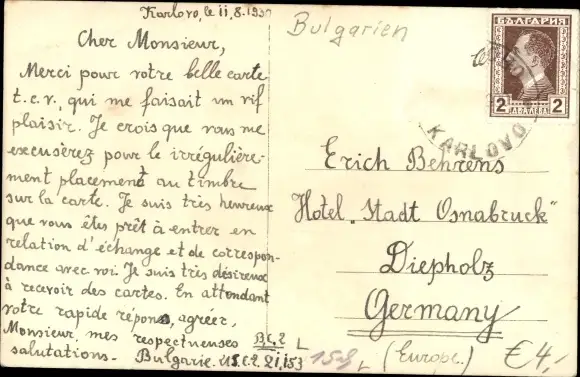 Karlovo, le 11.8.193
Cher Monsieur,
Merci pour votre belle carte
t.c.v., qui me faisait un vif
plaisir. Je crois que vous me
excusèrez pour le irrégulière-
ment placement au timbre
sur la carte. Je suis très heureux
que vous êtes prêt à entrer en
relation d'échange et de correspon-
dance avec voi. Je suis très désireux
à recevoir des cartes. En attendant
votre rapide répons, agréer,
Monsieur, mes respectueuses
salutations-
B.E.2 L
Bulgarie. U.S.E.2. 21,153
Bulgarien
БЪЛГАРИЯ
2 ДВА ЛЕВА 2
KARLOVO
Erich Behrens
Hotel „Stadt Osnabruck"
Diepholz
Germany
(Europe.)
€4,-